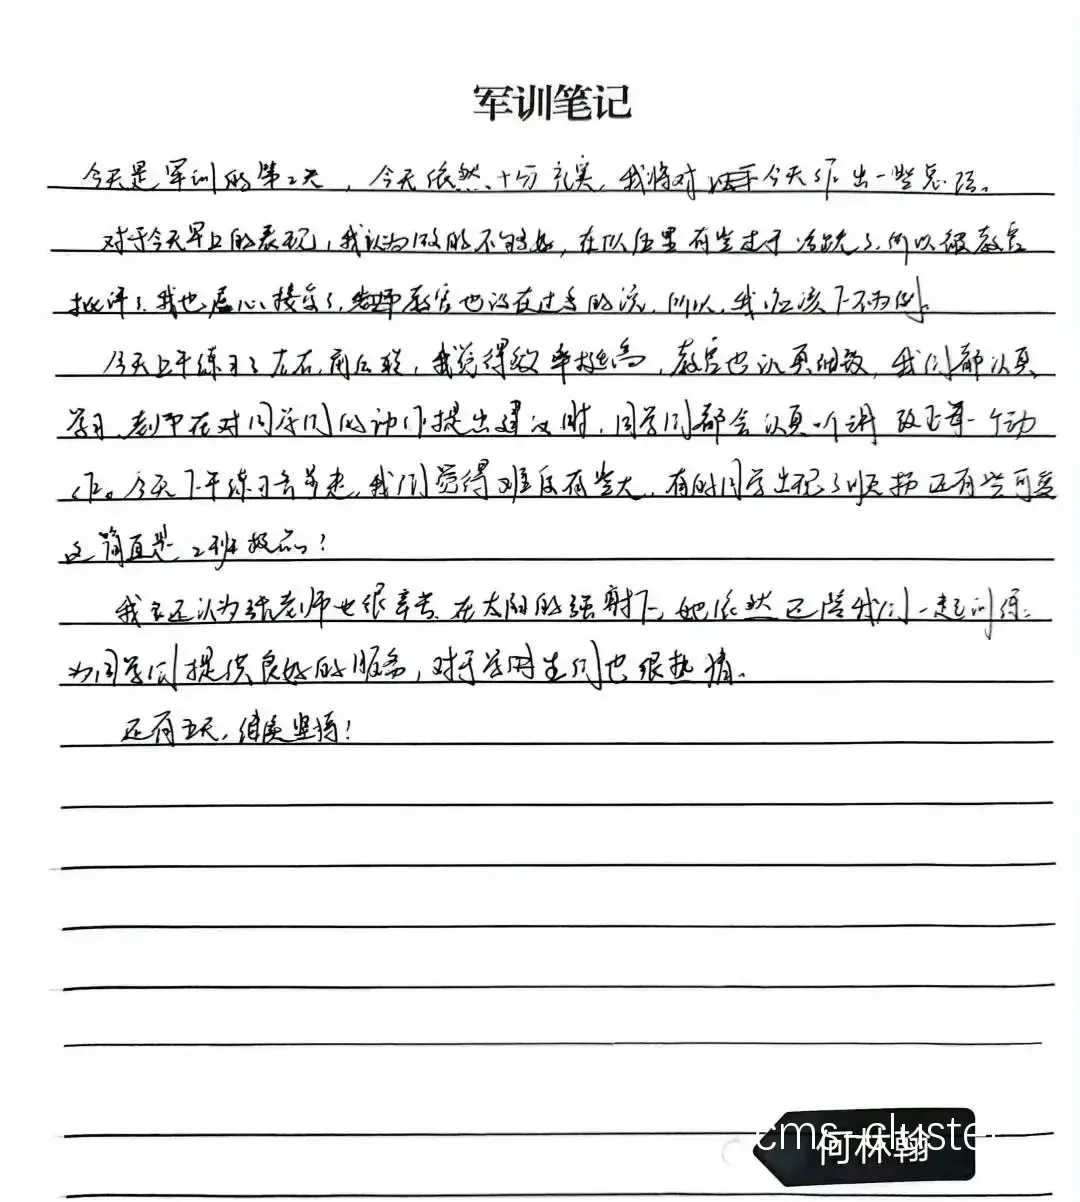 军训笔记
今天是军训的第2天，今天依然十分充实，我将对今天作出一些总结。
对于今天早上的表现，我认为做的不够好，在队伍里有些过于活跃了，所以被教官
批评了，我也虚心接受了，教官也没在过多的说，所以，我应该下不为例。
今天上午练习了左右，前后转，我觉得效率挺高，教官也认真细致，我们都认真
学习，老师在对同学们的动作提出建议时，同学们都会认真听讲 改正每一个动
作。今天下午练习齐步走，我们觉得难度有些大，有的同学出现了顺拐 还有些可爱
这简直是2班极品！
我还认为张老师也很辛苦，在太阳的强射下，她依然还陪我们一起训练，
为同学们提供良好的服务，对于学生们也很热情。
还有五天，继续坚持！
cms-cluster
何林翰